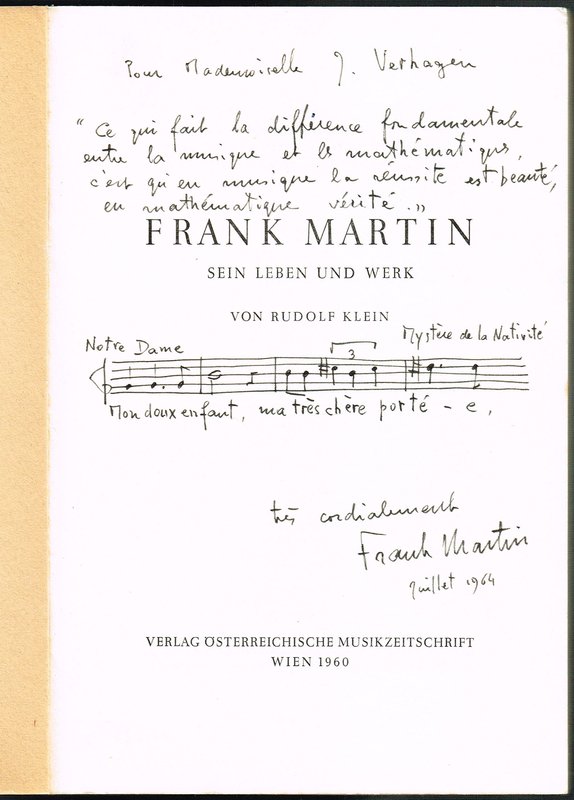 Pour Mademoiselle J. Verhagen
“ Ce qui fait la différence fondamentale
entre la musique et les mathématiques,
c'est qu'en musique la réussite est beauté,
en mathématique vérité. ”
FRANK MARTIN
SEIN LEBEN UND WERK
VON RUDOLF KLEIN
Notre Dame
Mystère de la Nativité
3
Mon doux enfant, ma très chère porté - e,
très cordialement
Frank Martin
Juillet 1964
VERLAG ÖSTERREICHISCHE MUSIKZEITSCHRIFT
WIEN 1960